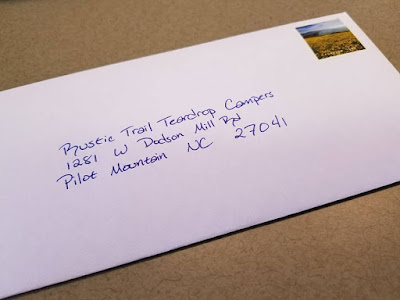 Rustic Trail Teardrop Campers
1281 W Dodson Mill Rd
Pilot Mountain NC 27041